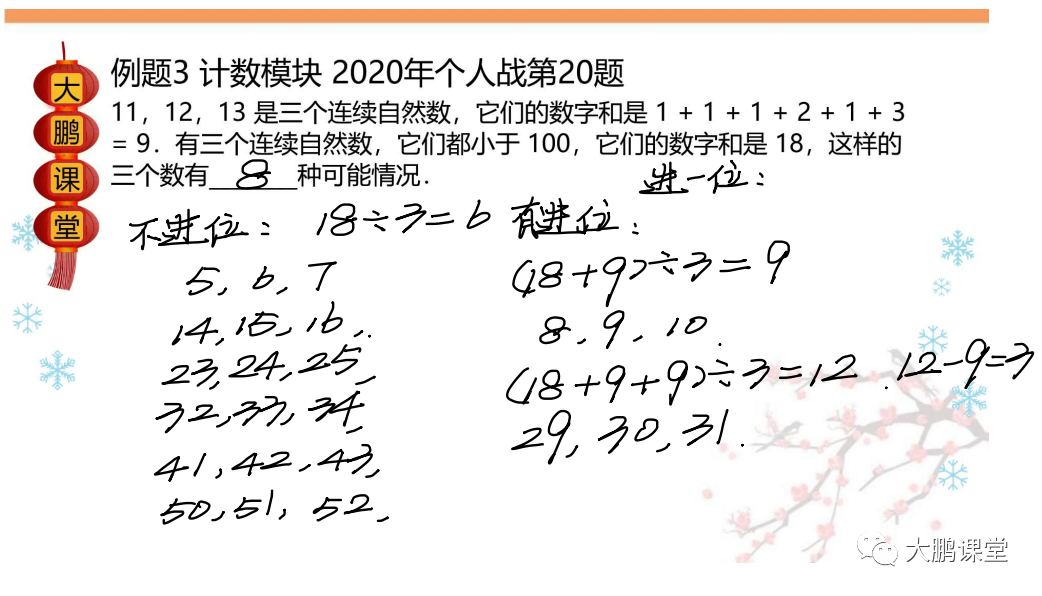 大鹏课堂
例题3 计数模块 2020年个人战第20题
11，12，13 是三个连续自然数，它们的数字和是 1 + 1 + 1 + 2 + 1 + 3
= 9．有三个连续自然数，它们都小于 100，它们的数字和是 18，这样的
三个数有 8 种可能情况．
进一位：
不进位： 18÷3=6
5, 6, 7
14,15,16,.
23,24,25,
32,33,34,
41,42,43,
50,51,52,
有进位：
(18+9)÷3=9
8, 9, 10.
(18+9+9)÷3=12. 12-9=3
29, 30, 31.
大鹏课堂